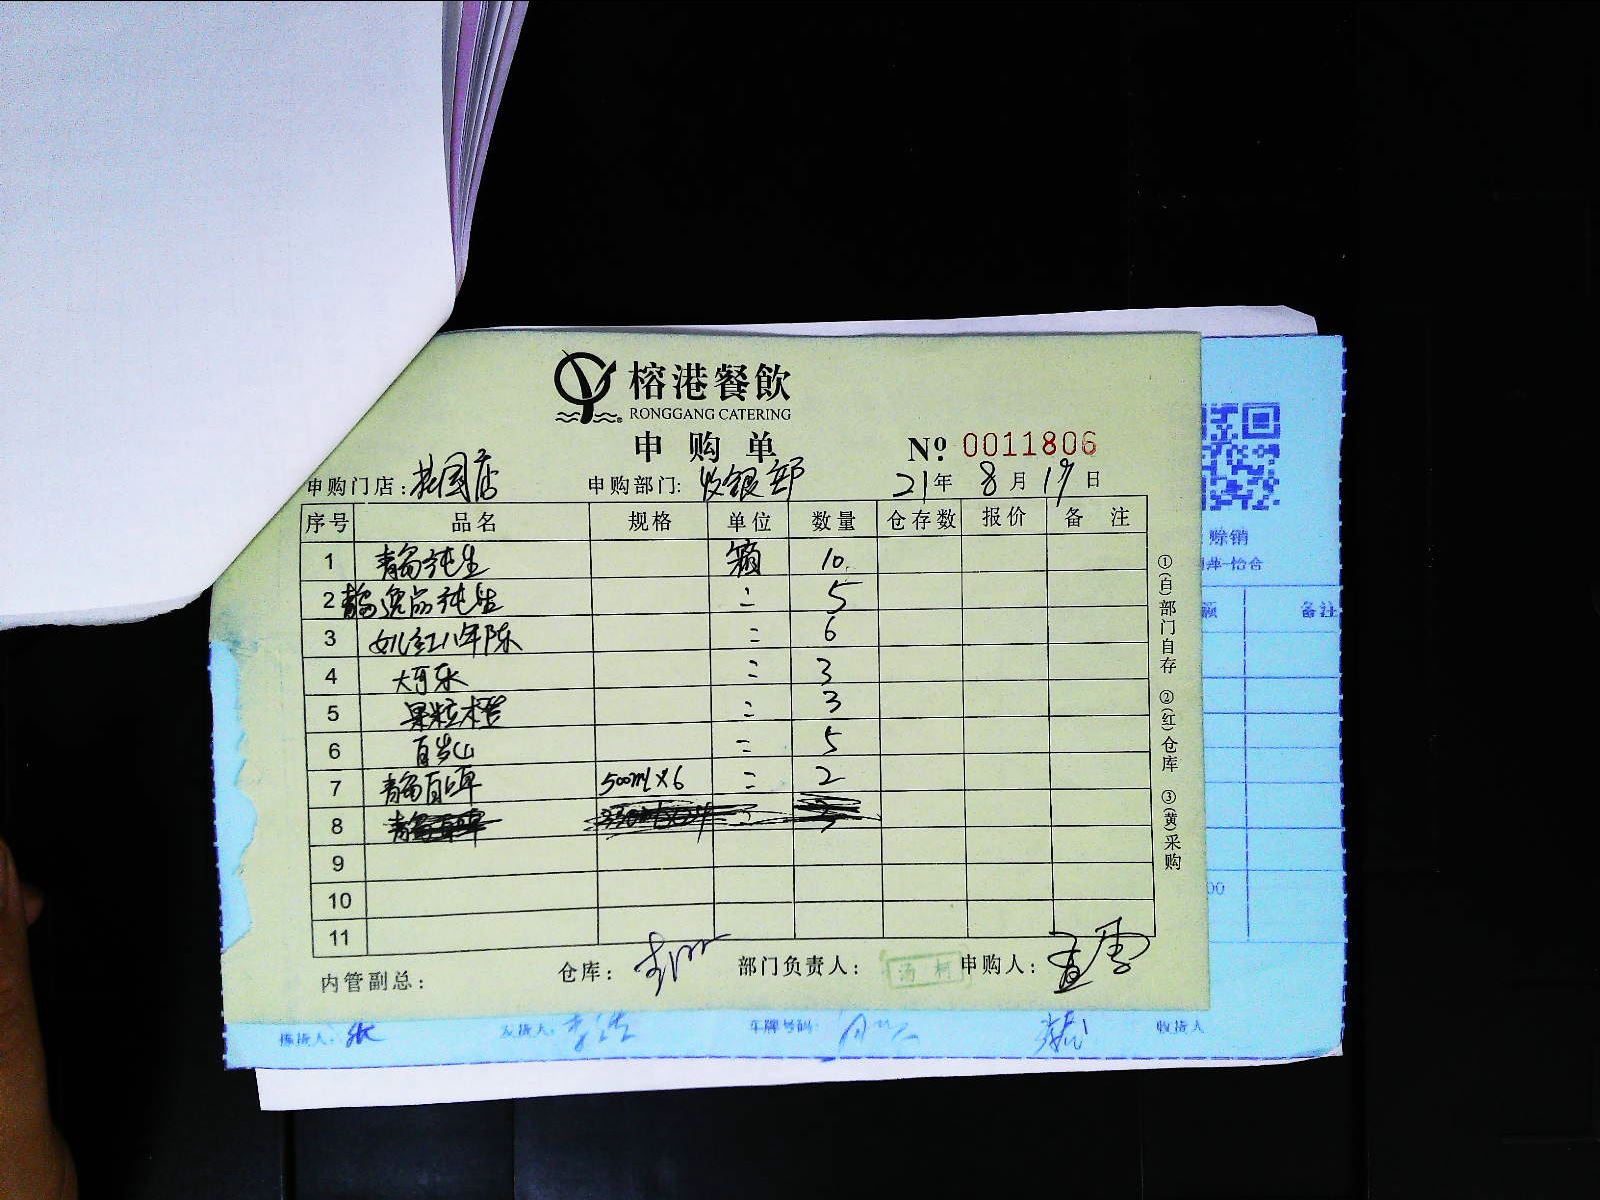 榕港餐飲
RONGGANG CATERING
申购单
№ 0011806
申购门店: 店 申购部门: 收银部 21年 8月 19日
序号 品名 规格 单位 数量 仓存数 报价 备注
1 青岛纯生 箱 10
2 青岛逸品纯生 〃 5
3 女儿红八年陈 〃 6
4 大可乐 〃 3
5 果粒橙 〃 3
6 百岁山 〃 5
7 青岛白啤 500ml×6 〃 2
8
9
10
11
内管副总: 仓库: 部门负责人: 汤柯 申购人:
①(白)部门自存 ②(红)仓库 ③(黄)采购
赊销
备注
00
发货人: 车牌号码: 收货人